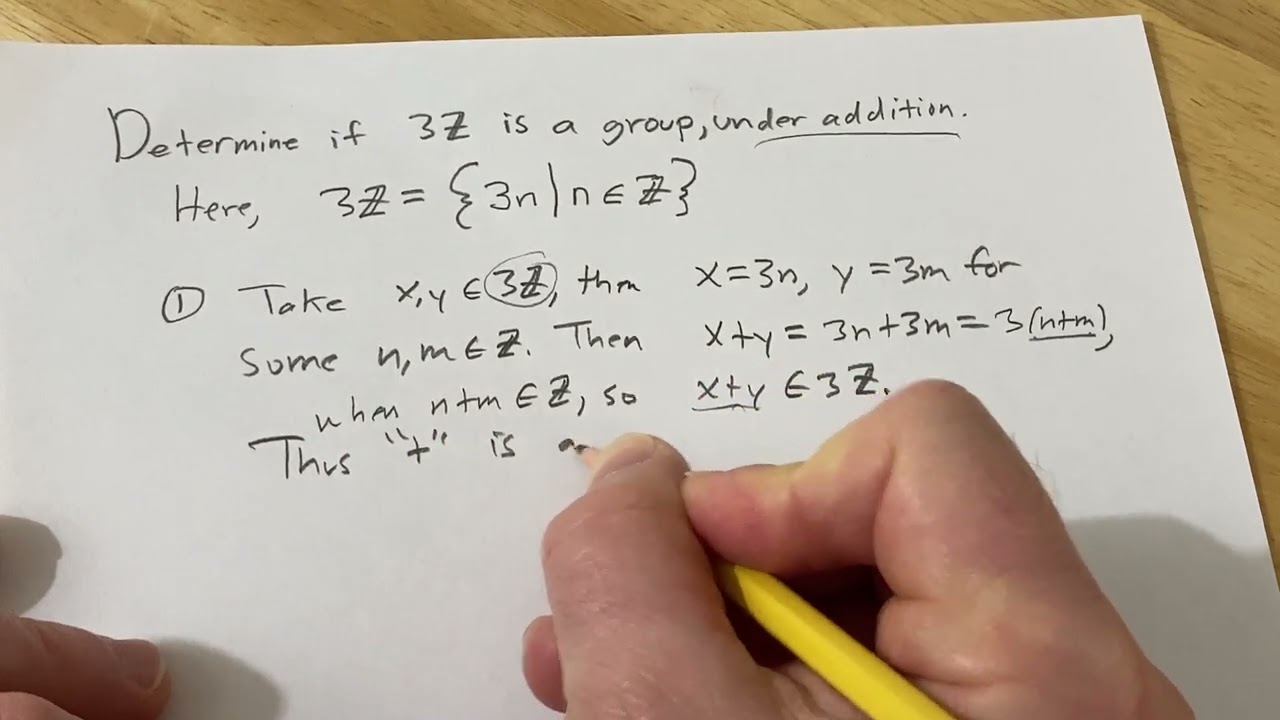 Determine if 3ℤ is a group, under addition.
Here, 3ℤ = {3n | n ∈ ℤ}
① Take x, y ∈ 3ℤ, then x = 3n, y = 3m for
some n, m ∈ ℤ. Then x+y = 3n+3m = 3(n+m),
when n+m ∈ ℤ, so x+y ∈ 3ℤ.
Thus "+" is a